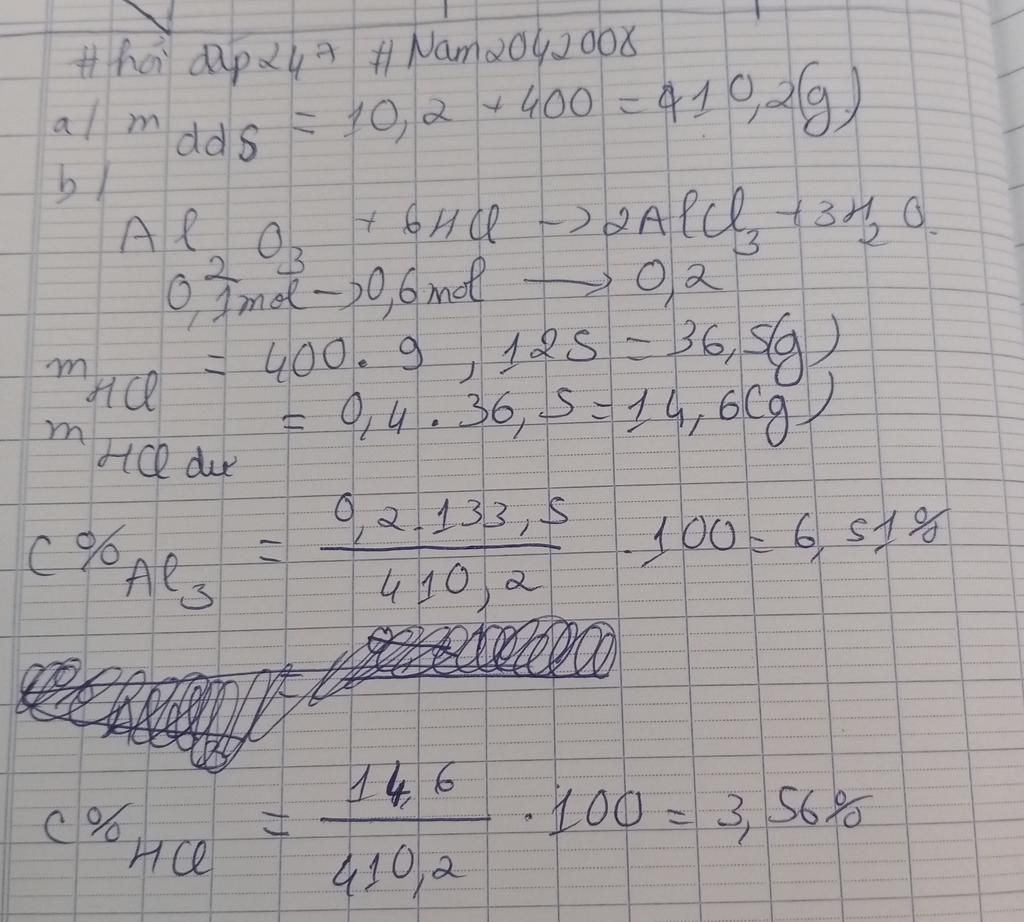 #hỏi đáp247 #Nam2042008
a/ m ddS = 10,2 + 400 = 410,2(g)
b/
Al2O3 + 6HCl -> 2AlCl3 + 3H2O.
0,1mol -> 0,6mol -> 0,2
mHCl = 400. 9,125 = 36,5(g)
mHCl dư = 0,4 . 36,5 = 14,6(g)
C%Al3 = 0,2.133,5 / 410,2 .100 = 6,51%
C%HCl = 14,6 / 410,2 . 100 = 3,56%